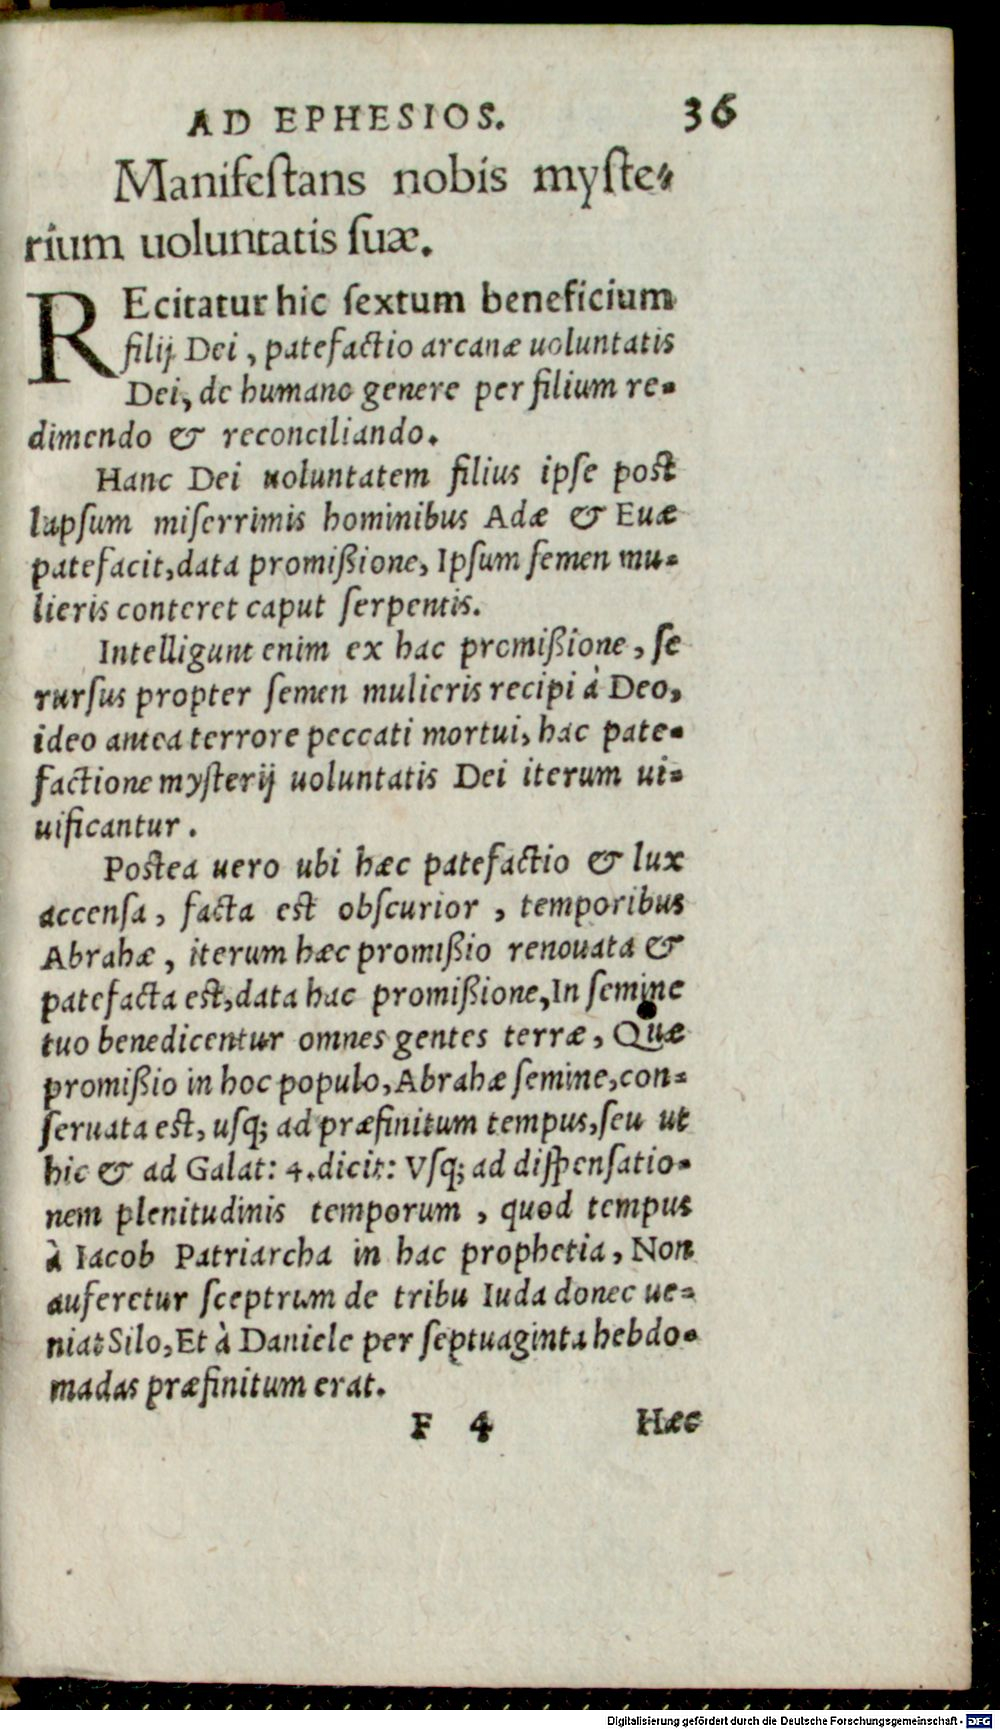 AD EPHESIOS. 36
Manifestans nobis myste-
rium uoluntatis suæ.
REcitatur hic sextum beneficium
filij Dei, patefactio arcanæ uoluntatis
Dei, de humano genere per filium re-
dimendo & reconciliando.
Hanc Dei uoluntatem filius ipse post
lapsum miserrimis hominibus Adæ & Euæ
patefacit, data promißione, Ipsum semen mu-
lieris conteret caput serpentis.
Intelligunt enim ex hac promißione, se
rursus propter semen mulieris recipi à Deo,
ideo antea terrore peccati mortui, hac pate-
factione mysterij uoluntatis Dei iterum ui-
uificantur.
Postea uero ubi hæc patefactio & lux
accensa, facta est obscurior, temporibus
Abrahæ, iterum hæc promißio renouata &
patefacta est, data hac promißione, In semine
tuo benedicentur omnes gentes terræ, Quæ
promißio in hoc populo, Abrahæ semine, con-
seruata est, usq; ad præfinitum tempus, seu ut
hic & ad Galat: 4. dicit: Vsq; ad dispensatio-
nem plenitudinis temporum, quod tempus
à Iacob Patriarcha in hac prophetia, Non
auferetur sceptrum de tribu Iuda donec ue-
niat Silo, Et à Daniele per septuaginta hebdo-
madas præfinitum erat.
F 4 Hæc
Digitalisierung gefördert durch die Deutsche Forschungsgemeinschaft - DFG